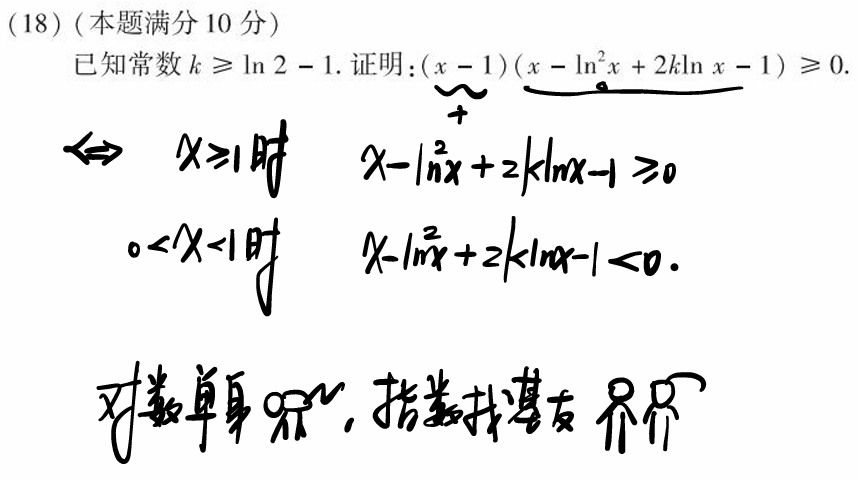 (18) (本题满分 10 分)
已知常数 k ≥ ln 2 - 1. 证明:(x - 1)(x - ln²x + 2kln x - 1) ≥ 0.
+
⟺ x≥1时 x-ln²x+2klnx-1≥0
0<x<1时 x-ln²x+2klnx-1<0.
对数单身狗,指数找基友